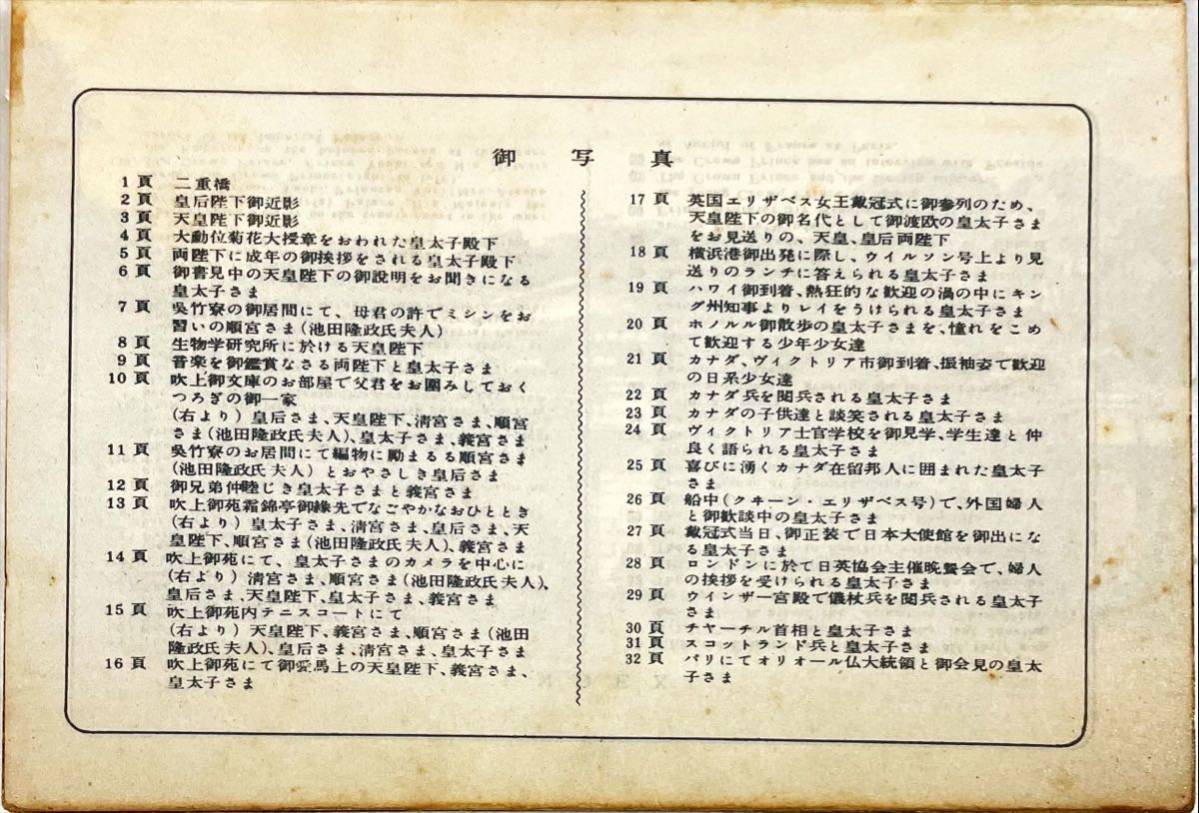 御写真
1頁 二重橋
2頁 皇后陛下御近影
3頁 天皇陛下御近影
4頁 大勳位菊花大授章をおわれた皇太子殿下
5頁 両陛下に成年の御挨拶をされる皇太子殿下
6頁 御書見中の天皇陛下の御説明をお聞きになる
皇太子さま
7頁 呉竹寮の御居間にて、母君の許でミシンをお
習いの順宮さま(池田隆政氏夫人)
8頁 生物学研究所に於ける天皇陛下
9頁 音楽を御鑑賞なさる両陛下と皇太子さま
10頁 吹上御文庫のお部屋で父君をお囲みしておく
つろぎの御一家
(右より)皇后さま、天皇陛下、清宮さま、順宮
さま(池田隆政氏夫人)、皇太子さま、義宮さま
11頁 呉竹寮のお居間にて編物に励まるる順宮さま
(池田隆政氏夫人)とおやさしき皇后さま
12頁 御兄弟仲睦じき皇太子さまと義宮さま
13頁 吹上御苑霜錦亭御縁先でなごやかなおひととき
(右より)皇太子さま、清宮さま、皇后さま、天
皇陛下、順宮さま(池田隆政氏夫人)、義宮さま
14頁 吹上御苑にて、皇太子さまのカメラを中心に
(右より)清宮さま、順宮さま(池田隆政氏夫人)、
皇后さま、天皇陛下、皇太子さま、義宮さま
15頁 吹上御苑内テニスコートにて
(右より)天皇陛下、義宮さま、順宮さま(池田
隆政氏夫人)、皇后さま、清宮さま、皇太子さま
16頁 吹上御苑にて御愛馬上の天皇陛下、義宮さま、
皇太子さま
17頁 英国エリザベス女王戴冠式に御参列のため、
天皇陛下の御名代として御渡欧の皇太子さま
をお見送りの、天皇、皇后両陛下
18頁 横浜港御出発に際し、ウイルソン号上より見
送りのランチに答えられる皇太子さま
19頁 ハワイ御到着、熱狂的な歓迎の渦の中にキン
グ州知事よりレイをうけられる皇太子さま
20頁 ホノルル御散歩の皇太子さまを、憧れをこめ
て歓迎する少年少女達
21頁 カナダ、ヴィクトリア市御到着、振袖姿で歓迎
の日系少女達
22頁 カナダ兵を閲兵される皇太子さま
23頁 カナダの子供達と談笑される皇太子さま
24頁 ヴィクトリア士官学校を御見学、学生達と仲
良く語られる皇太子さま
25頁 喜びに湧くカナダ在留邦人に囲まれた皇太子
さま
26頁 船中(クヰーン・エリザベス号)で、外国婦人
と御歓談中の皇太子さま
27頁 戴冠式当日、御正装で日本大使館を御出にな
る皇太子さま
28頁 ロンドンに於て日英協会主催晩餐会で、婦人
の挨拶を受けられる皇太子さま
29頁 ウインザー宮殿で儀杖兵を閲兵される皇太子
さま
30頁 チヤーチル首相と皇太子さま
31頁 スコットランド兵と皇太子さま
32頁 パリにてオリオール仏大統領と御会見の皇太
子さま